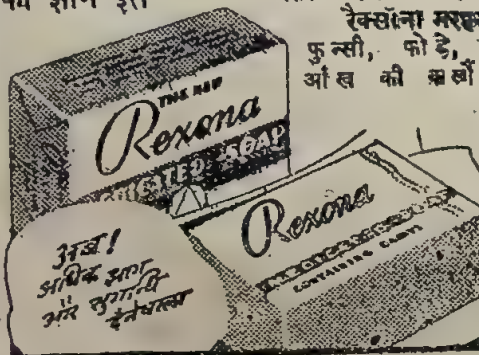 रैक्सॉना मरहम
फुन्सी, फोड़े,
आंख की
THE NEW
Rexona
MEDICATED SOAP
Rexona
CONTAINING CADYL
अब!
अधिक झाग
और सुगन्धि
देनेवाला